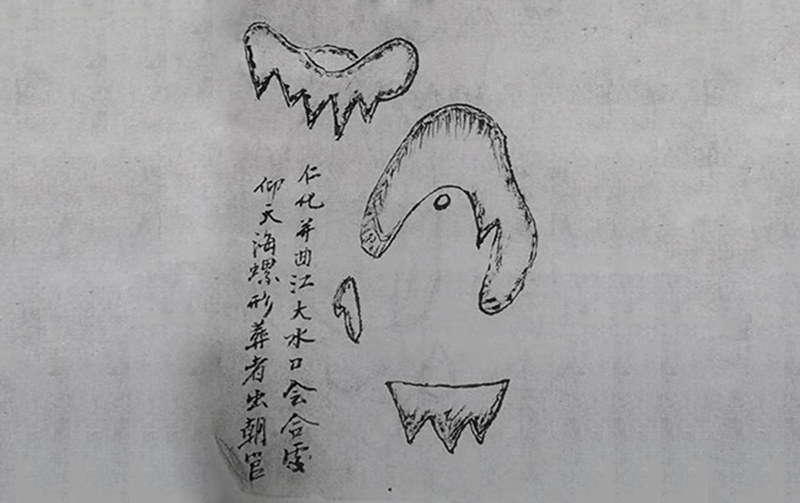 仁化并曲江大水口会合处
仰天海螺形葬者出朝官